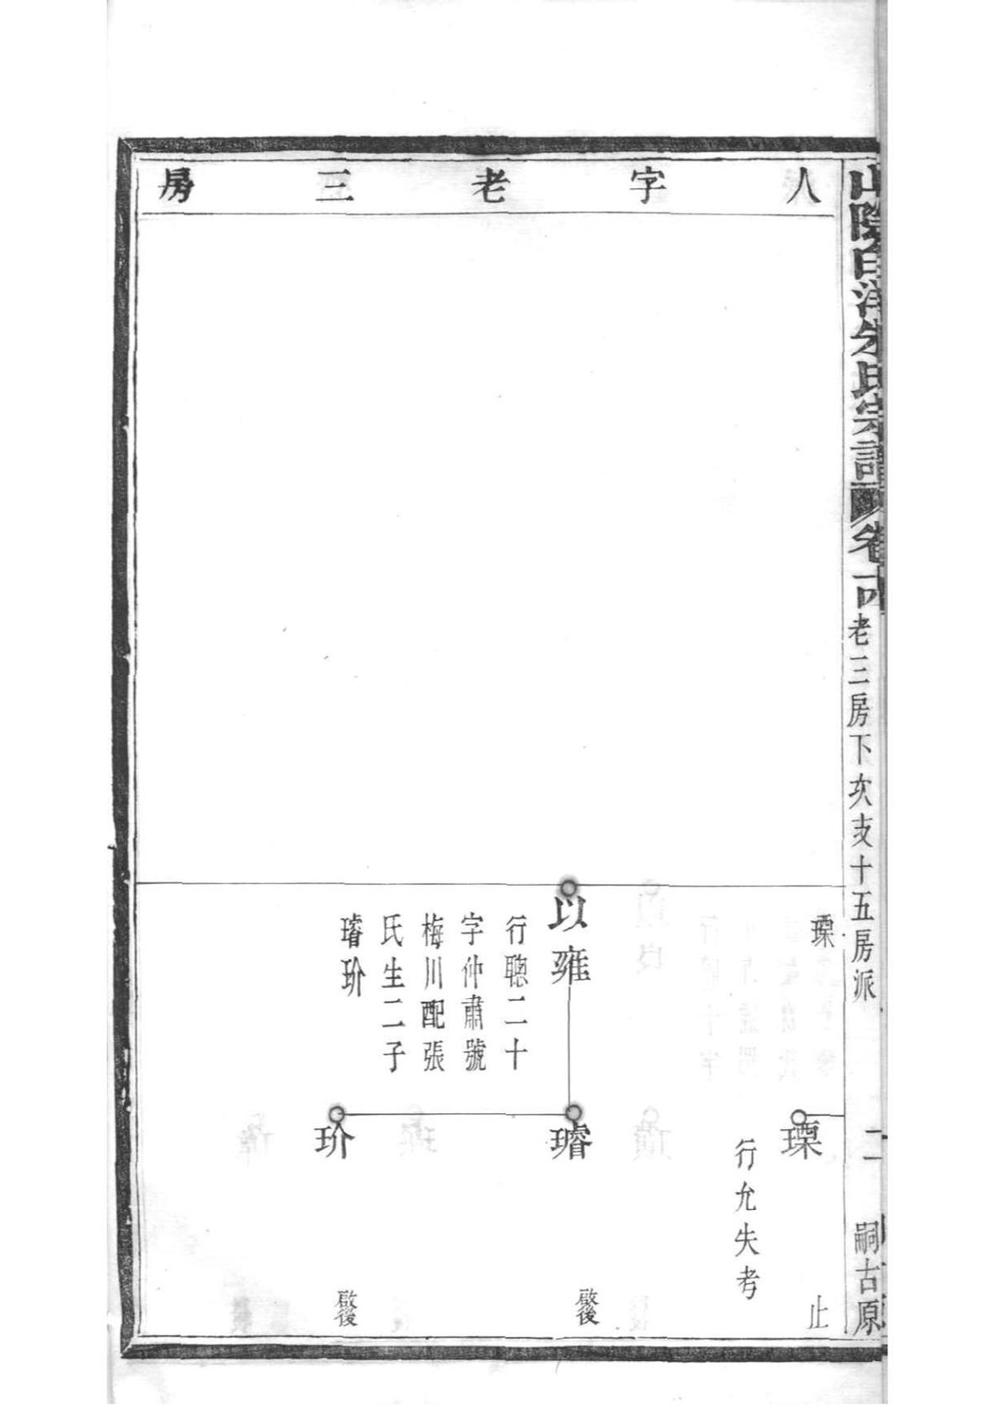 山陰白洋朱氏宗譜 卷十四 老三房下次支十五房派 二 嗣古原
人字老三房
瑮
瑮
行允失考
止
以雍
行聰二十
字仲肅號
梅川配張
氏生二子
璿玠
璿
啟後
玠
啟後